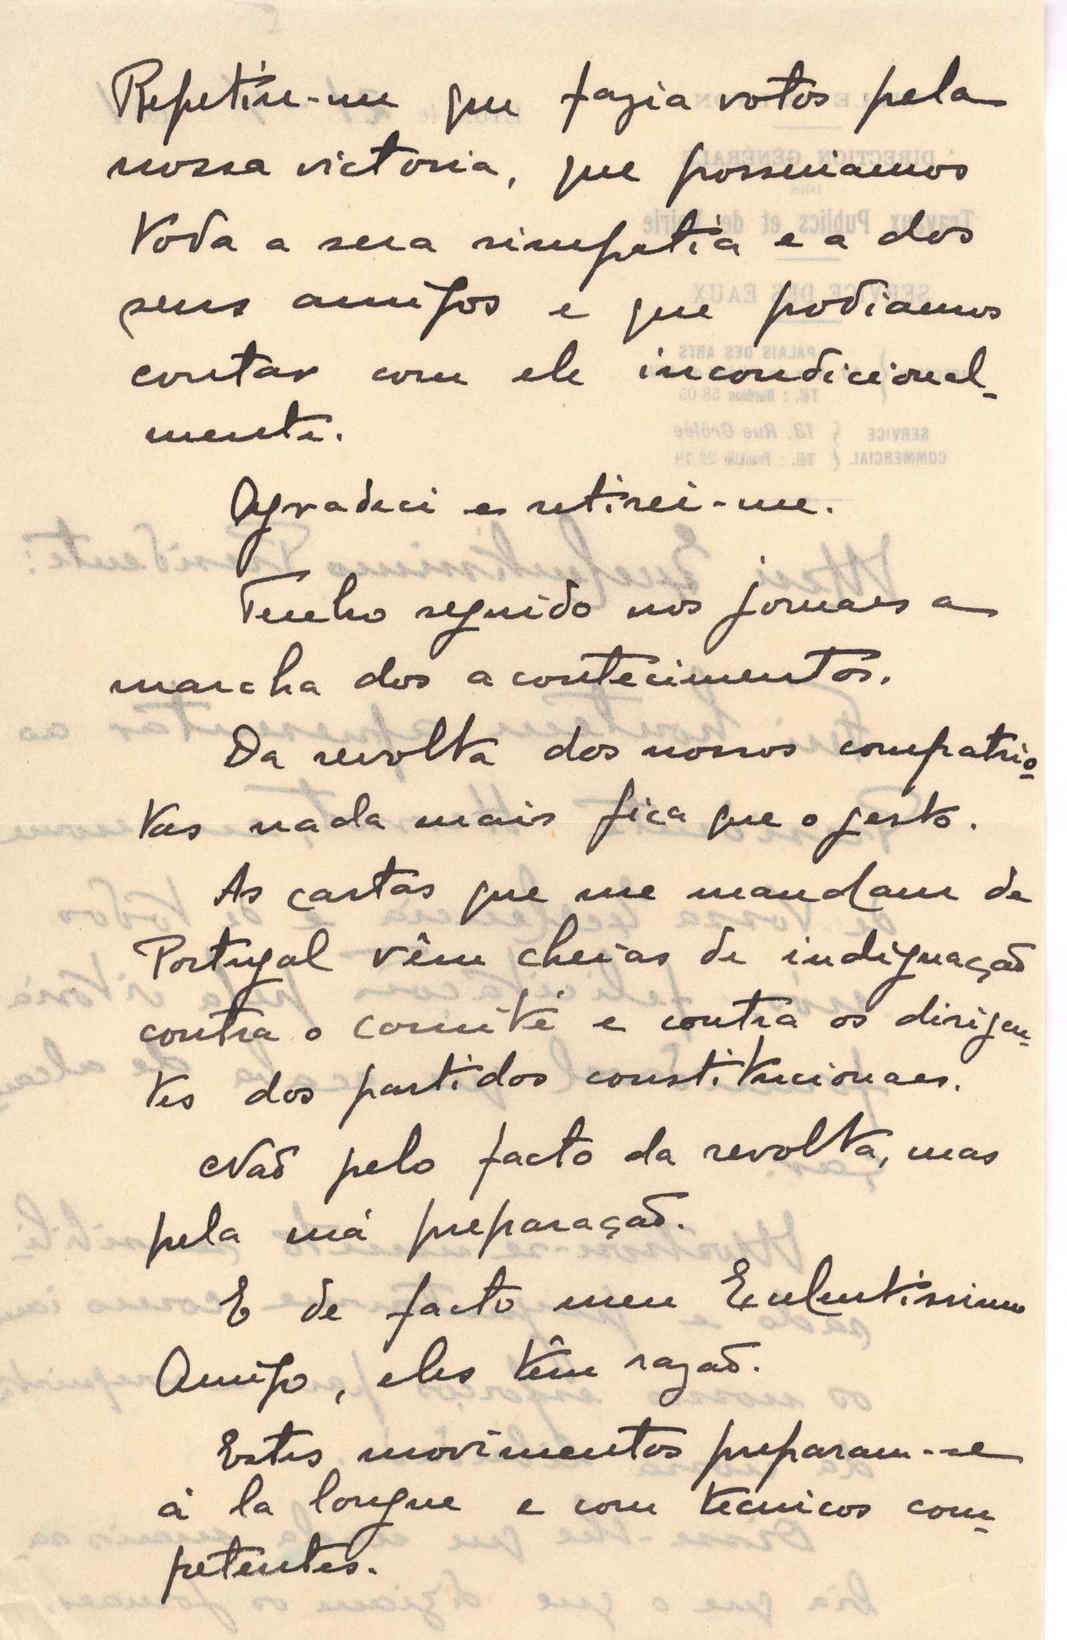 Repetiu-me que fazia votos pela
nossa victoria, que possuiamos
toda a sua simpatia e a dos
seus amigos e que podiamos
contar com ele incondicional-
mente.
Agradeci e retirei-me.
Tenho seguido nos jornaes a
marcha dos acontecimentos.
Da revolta dos nossos compatrio-
tas nada mais fica que o gesto.
As cartas que me mandam de
Portugal vêm cheias de indignação
contra o comité e contra os dirigen-
tes dos partidos constitucionaes.
Não pelo facto da revolta, mas
pela má preparação.
E de facto meu Excelentissimo
Amigo, eles têm razão.
Estes movimentos preparam-se
à la longue e com tecnicos com-
petentes.